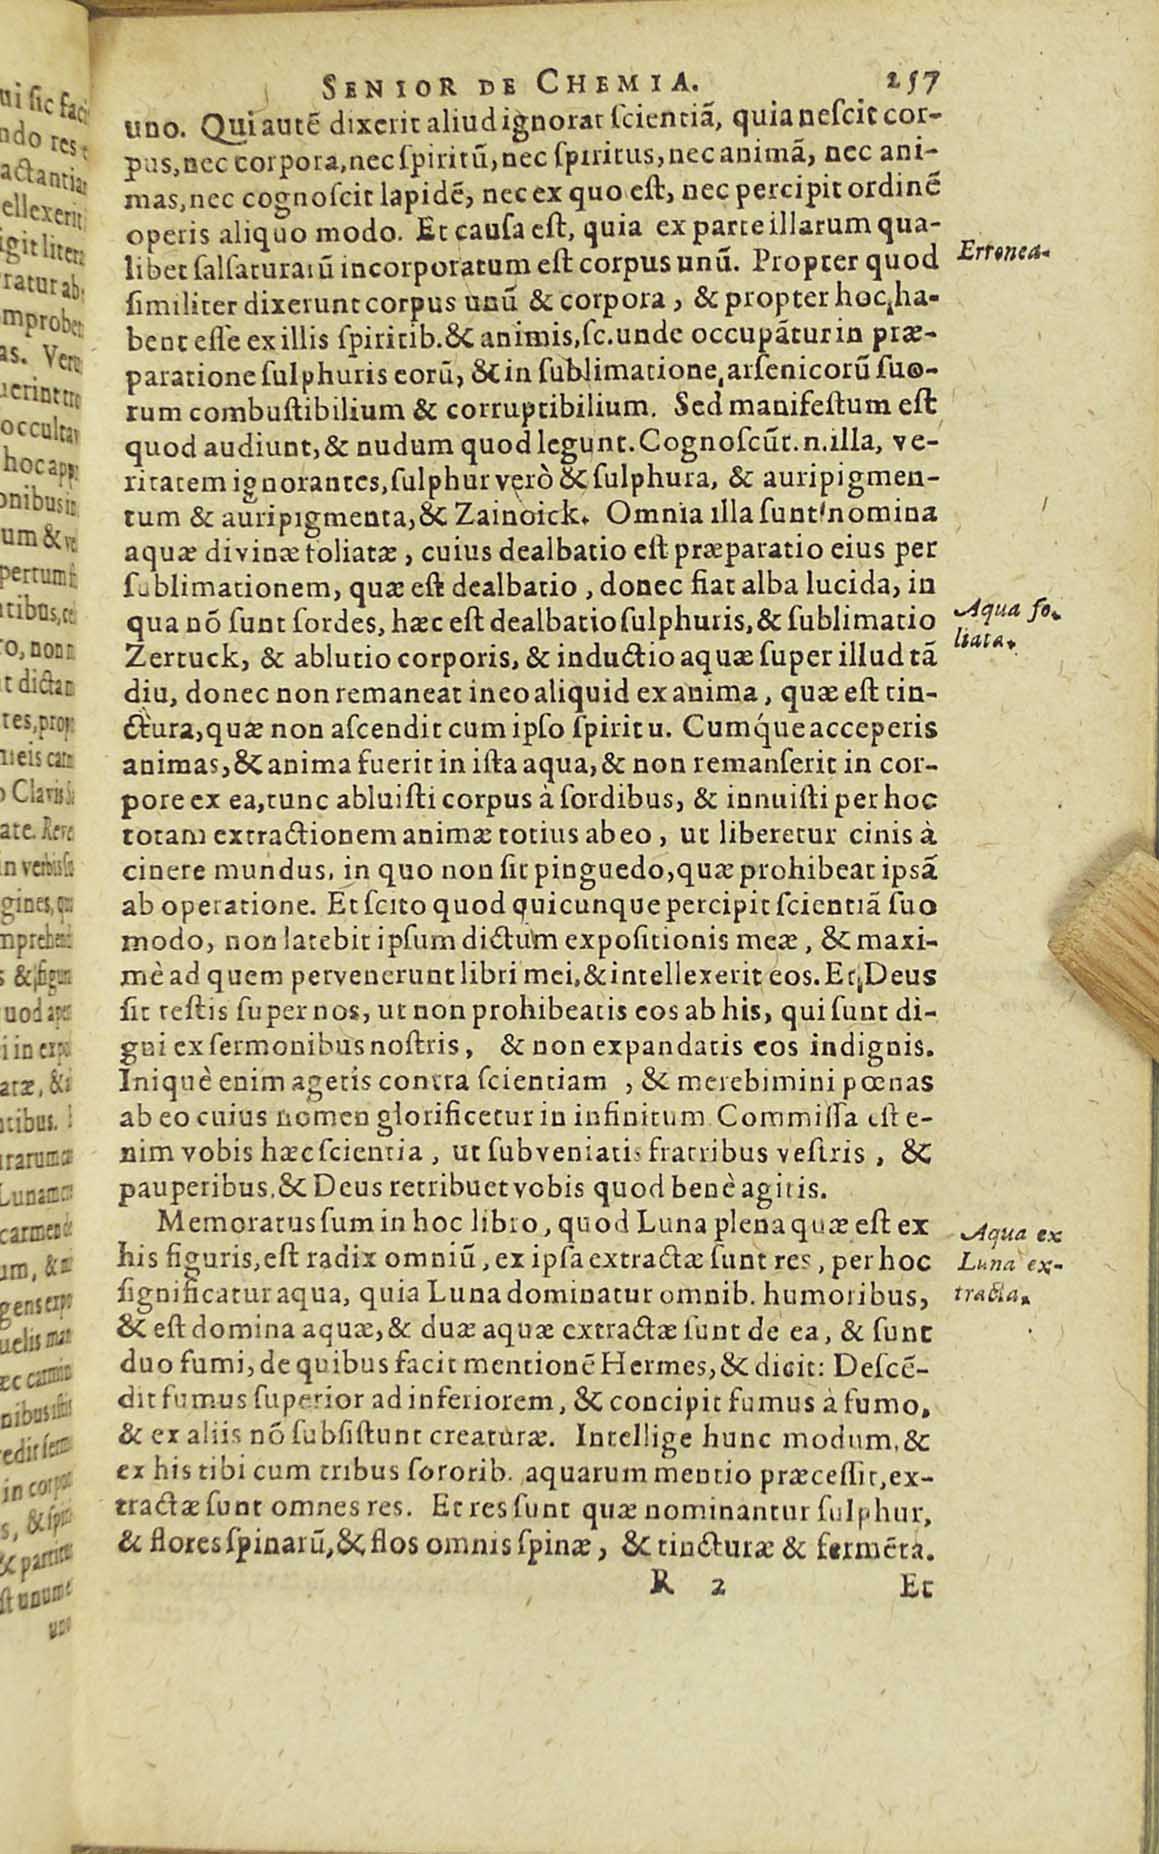 SENIOR DE CHEMIA. 257
uno. Qui autē dixerit aliud ignorat ſcientiã, quia neſcit cor-
pus, nec corpora, nec ſpiritū, nec ſpiritus, nec animã, nec ani-
mas, nec cognoſcit lapidē, nec ex quo eſt, nec percipit ordinē
operis aliquo modo. Et cauſa eſt, quia ex parte illarum qua-
libet ſalſaturarū incorporatum eſt corpus unū. Propter quod
Erronea.
ſimiliter dixerunt corpus unū & corpora, & propter hoc, ha-
bent eſſe ex illis ſpiritib. & animis, ſc. unde occupãtur in præ-
paratione ſulphuris eorū, & in ſublimatione, arſenicorū ſuo-
rum combuſtibilium & corruptibilium. Sed manifeſtum eſt
quod audiunt, & nudum quod legunt. Cognoſcūt. n. illa, ve-
ritatem ignorantes, ſulphur verò & ſulphura, & auripigmen-
tum & auripigmenta, & Zainoick. Omnia illa ſunt nomina
aquæ divinæ foliatæ, cuius dealbatio eſt præparatio eius per
ſublimationem, quæ eſt dealbatio, donec fiat alba lucida, in
qua nō ſunt ſordes, hæc eſt dealbatio ſulphuris, & ſublimatio
Aqua fo-
liata.
Zertuck, & ablutio corporis, & inductio aquæ ſuper illud tã
diu, donec non remaneat in eo aliquid ex anima, quæ eſt tin-
ctura, quæ non aſcendit cum ipſo ſpiritu. Cumq́ue acceperis
animas, & anima fuerit in iſta aqua, & non remanſerit in cor-
pore ex ea, tunc abluiſti corpus à ſordibus, & innuiſti per hoc
totam extractionem animæ totius ab eo, ut liberetur cinis à
cinere mundus, in quo non ſit pinguedo, quæ prohibeat ipsã
ab operatione. Et ſcito quod quicunque percipit ſcientiã ſuo
modo, non latebit ipſum dictum expoſitionis meæ, & maxi-
mè ad quem pervenerunt libri mei, & intellexerit eos. Et, Deus
ſit teſtis ſuper nos, ut non prohibeatis eos ab his, qui ſunt di-
gni ex ſermonibus noſtris, & non expandatis eos indignis.
Iniquè enim agetis contra ſcientiam, & merebimini pœnas
ab eo cuius nomen glorificetur in infinitum. Commiſſa eſt e-
nim vobis hæc ſcientia, ut ſubveniatis fratribus veſtris, &
pauperibus. & Deus retribuet vobis quod benè agitis.
Memoratus ſum in hoc libro, quod Luna plena quæ eſt ex
his figuris, eſt radix omniū, ex ipſa extractæ ſunt res, per hoc
ſignificatur aqua, quia Luna dominatur omnib. humoribus,
Aqua ex
Luna ex-
tracta.
& eſt domina aquæ, & duæ aquæ extractæ ſunt de ea, & ſunt
duo fumi, de quibus facit mentionē Hermes, & dicit: Deſcē-
dit fumus ſuperior ad inferiorem, & concipit fumus à fumo,
& ex aliis nō ſubſiſtunt creaturæ. Intellige hunc modum, &
ex his tibi cum tribus ſororib. aquarum mentio præceſſit, ex-
tractæ ſunt omnes res. Et res ſunt quæ nominantur ſulphur,
& flores ſpinarū, & flos omnis ſpinæ, & tincturæ & fermēta.
R 2 Et